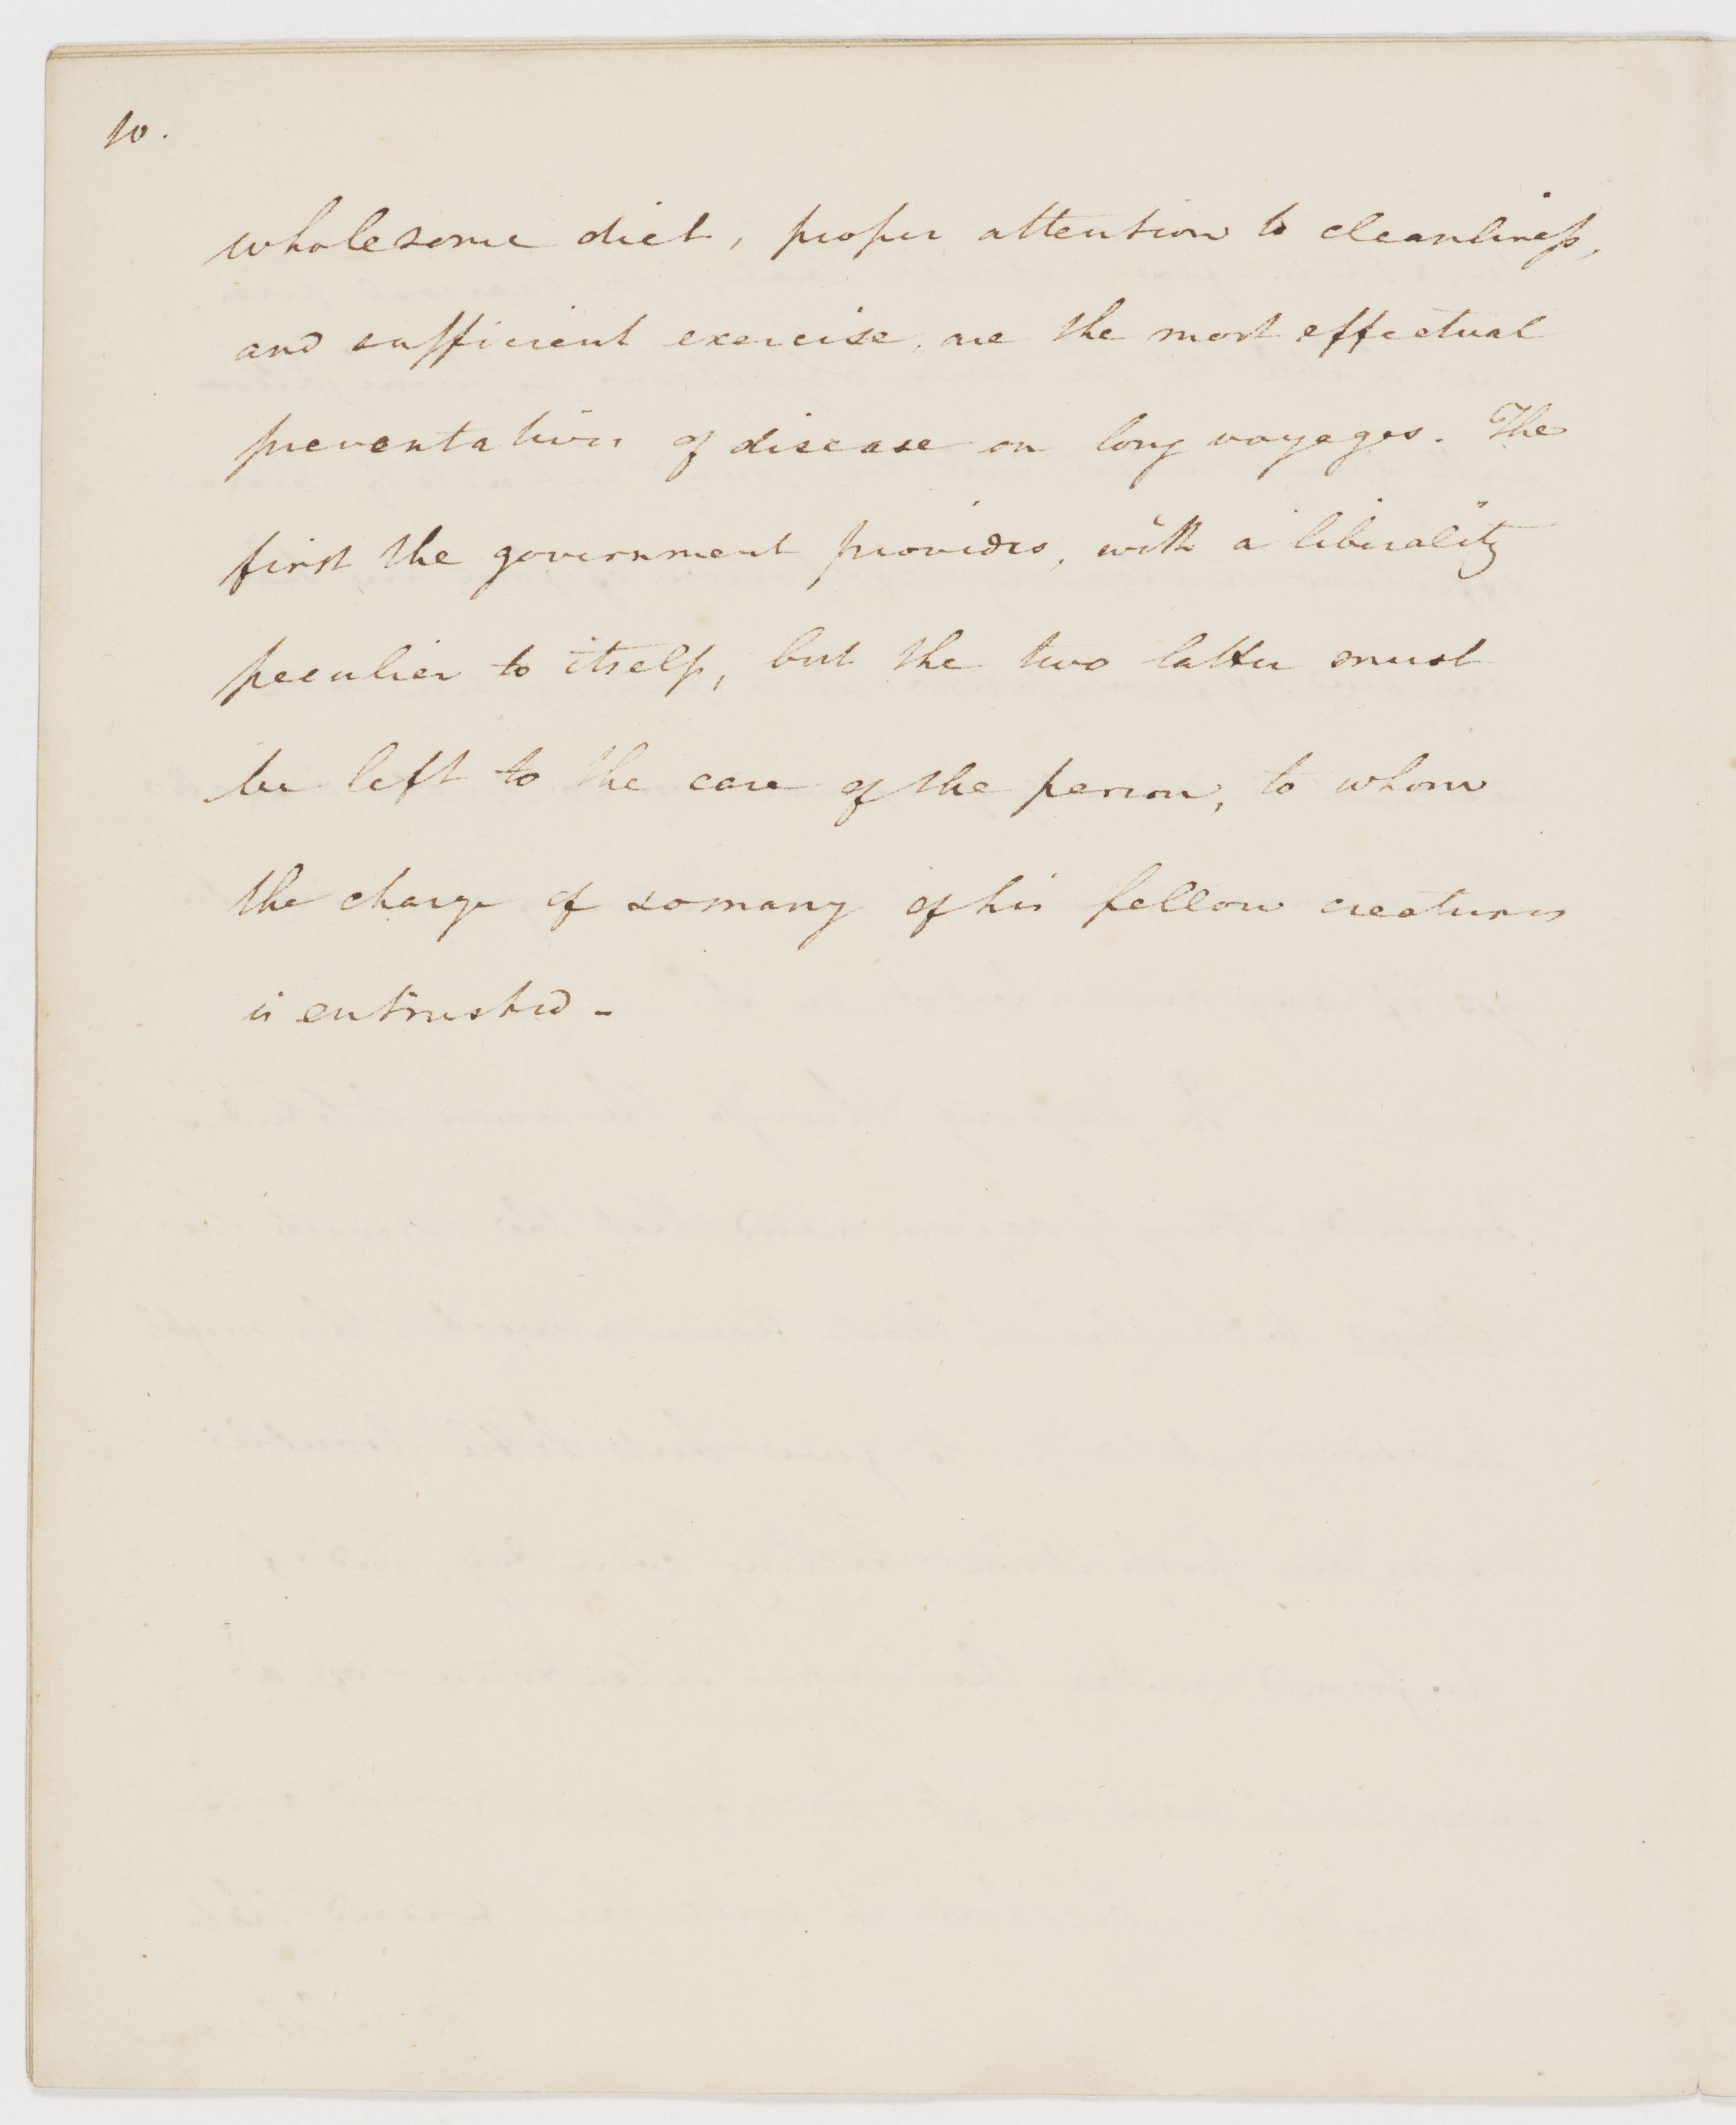 10.
wholesome diet, proper attention to cleanliness,
and sufficient exercise, are the most effectual
preventatives of disease on long voyages. The
first the government provides, with a liberality
peculier to itself, but the two latter must
be left to the care of the person, to whom
the charge of so many of his fellow creatures
is entrusted -